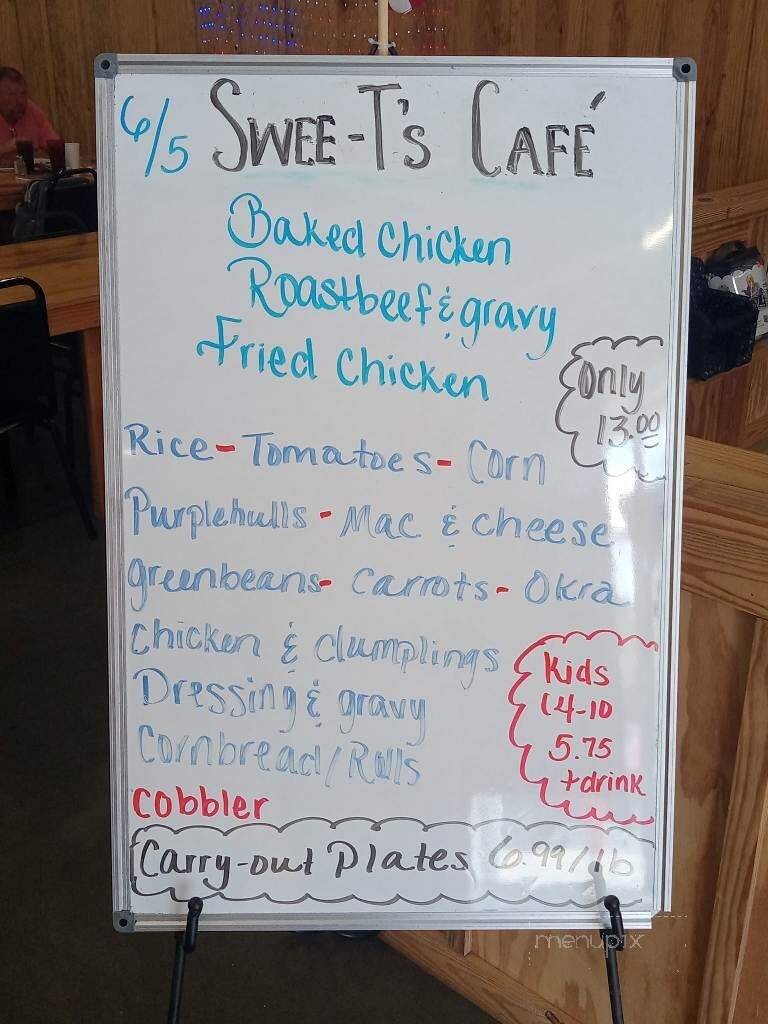 6/5 SWEE-T'S CAFÉ
Baked Chicken
Roastbeef & gravy
Fried Chicken
Only
13.00
Rice - Tomatoes - Corn
Purplehulls - Mac & cheese
greenbeans - Carrots - Okra
Chicken & dumplings
Dressing & gravy
Cornbread/Rolls
Kids
(4-10
5.75
+drink
Cobbler
Carry-out Plates 6.99/lb
menupix